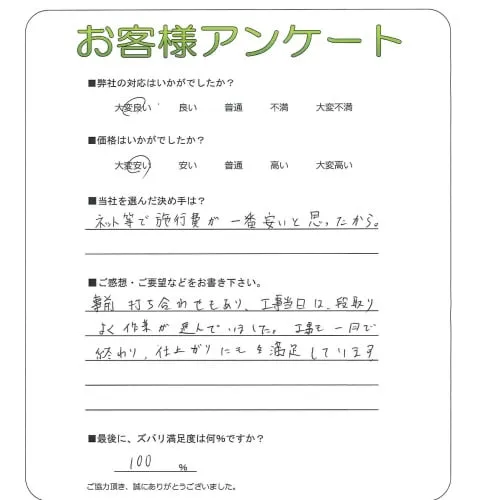 お客様アンケート
■弊社の対応はいかがでしたか？
大変良い 良い 普通 不満 大変不満
■価格はいかがでしたか？
大変安い 安い 普通 高い 大変高い
■当社を選んだ決め手は？
ネット等で施行費が一番安いと思ったから。
■ご感想・ご要望などをお書き下さい。
事前打ち合わせもあり、工事当日は、段取り
よく作業が進んでいました。工事も一日で
終わり、仕上がりにも満足しています
■最後に、ズバリ満足度は何%ですか？
100 %
ご協力頂き、誠にありがとうございました。